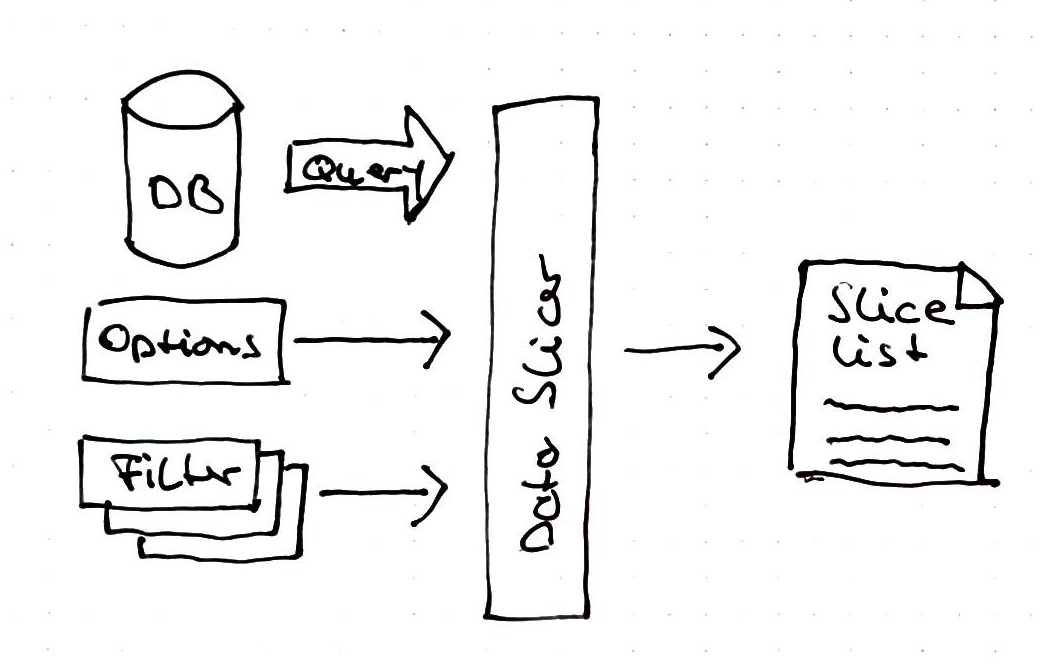 DB
Query
Options
Filter
Data Slicer
Slice
list